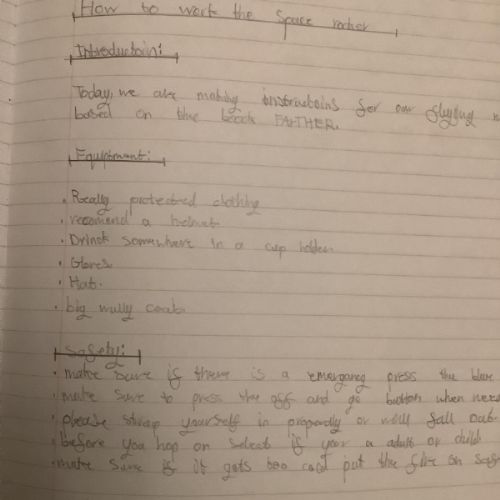 How to work the Space rocket
Introductoin:
Today, we are making instructoins for our flying
based on the book FATHER.
Equiptment:
• Really protected clothing
• recomend a helmet
• Drink somewhere in a cup holder
• Gloves
• Hat.
• big wully coat.
Safety:
• make sure if there is a emergancy press the blue
• make sure to press the off and go button when need
• please strap yourself in properly or will fall out.
• before you hop on select if your a adult or child
• make sure if it gets too cold put the fire on